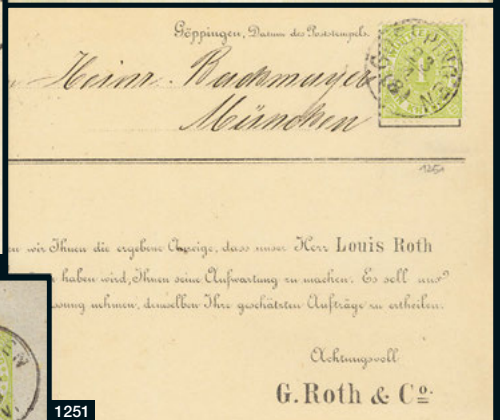 Göppingen, Datum des Poststempels.
n Heinr. Bachmayer
München
1251
en wir Ihnen die ergebene Anzeige, dass unser Herr Louis Roth
haben wird, Ihnen seine Aufwartung zu machen. Es soll uns
ssung nehmen, demselben Ihre geschätzten Aufträge zu ertheilen.
Achtungsvoll
G. Roth & Co.
1251